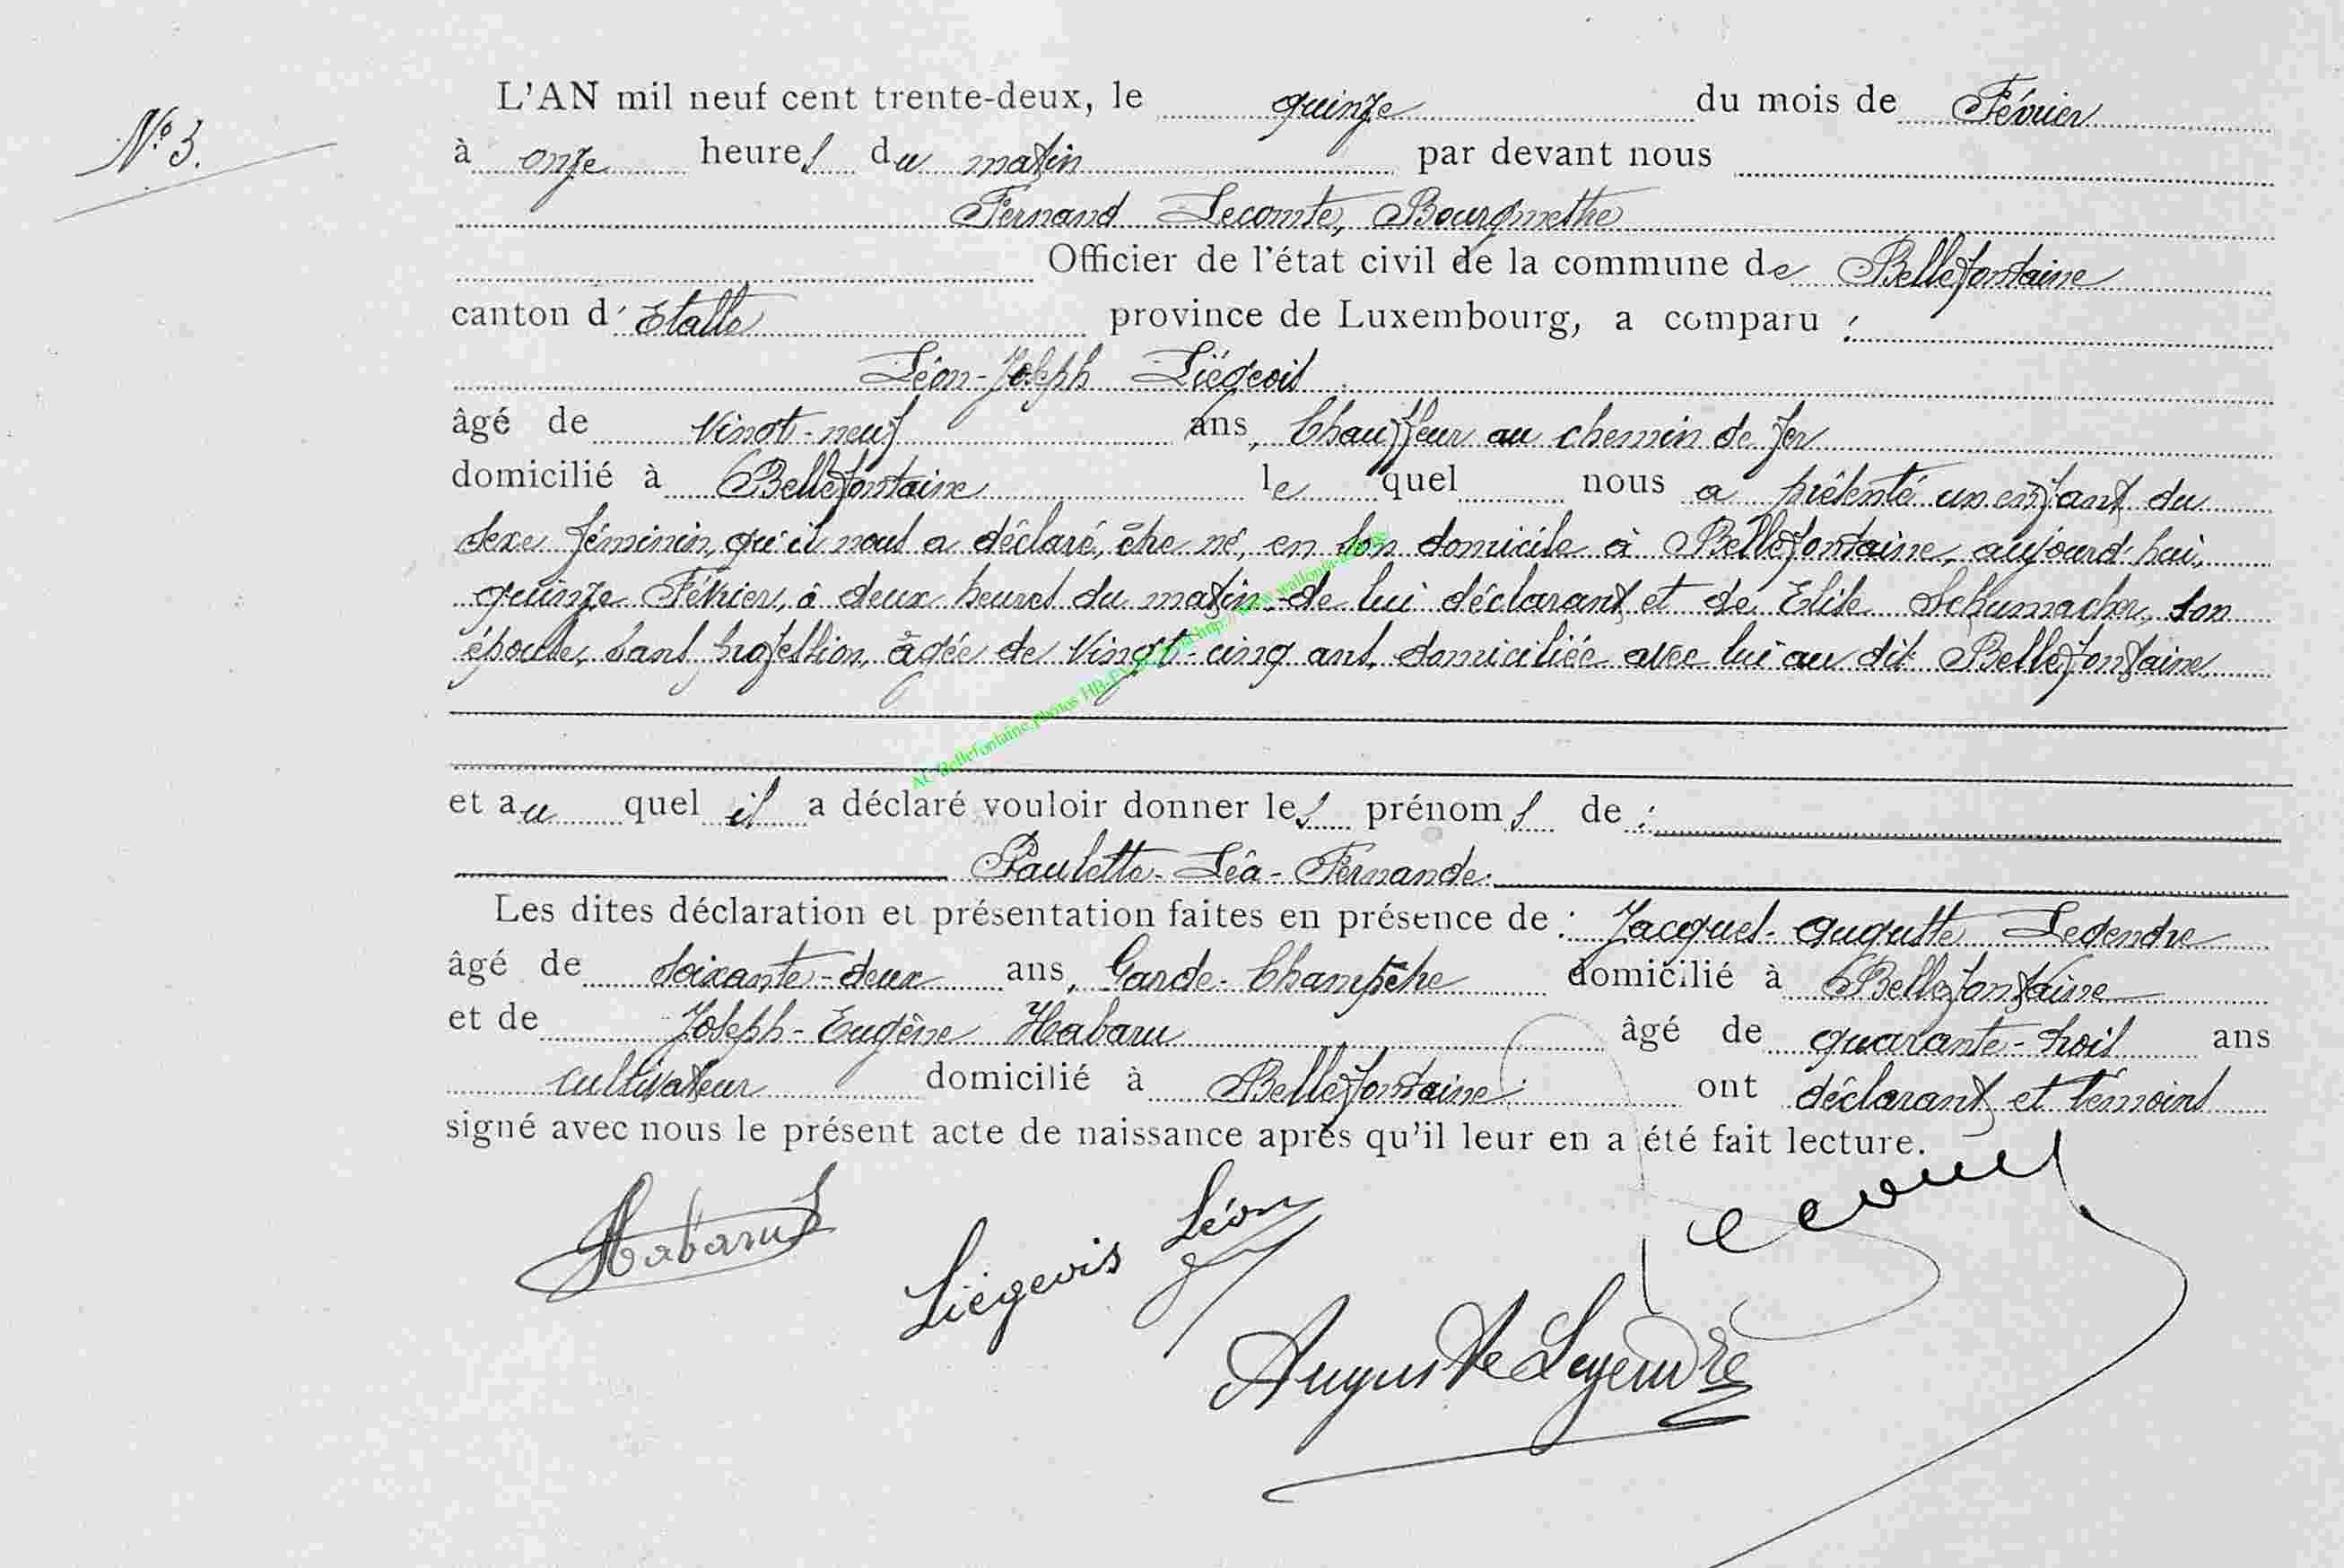 N° 3.
L'AN mil neuf cent trente-deux, le quinze du mois de Février
à onze heures du matin par devant nous
Fernand Lecomte, Bourgmestre
Officier de l'état civil de la commune de Bellefontaine
canton d'Etalle province de Luxembourg, a comparu :
Léon-Joseph Liégeois
âgé de vingt-neuf ans, Chauffeur au chemin de fer
domicilié à Bellefontaine lequel nous a présenté un enfant du
sexe féminin, qu'il nous a déclaré, être né, en son domicile à Bellefontaine, aujourd'hui,
quinze Février, à deux heures du matin de lui déclarant et de Elise Schumacher, son
épouse, sans profession, âgée de vingt-cinq ans, domiciliée avec lui au dit Bellefontaine
AC Bellefontaine, photos
et auquel il a déclaré vouloir donner les prénoms de :
Paulette-Léa-Fernande.
Les dites déclaration et présentation faites en présence de : Jacques-Auguste Legendre
âgé de soixante-deux ans, Garde-Champêtre domicilié à Bellefontaine
et de Joseph-Eugène Habaru âgé de quarante-trois ans
cultivateur domicilié à Bellefontaine. ont déclarant et témoins
signé avec nous le présent acte de naissance après qu'il leur en a été fait lecture.
Habaru J
Liégeois Léon
Auguste Legendre